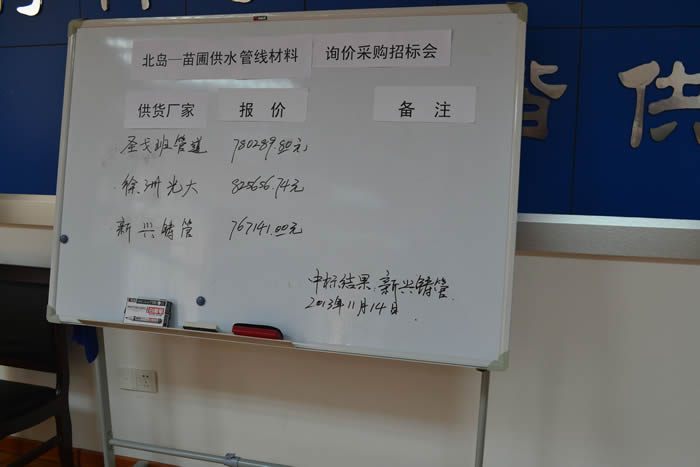 北岛—苗圃供水管线材料 询价采购招标会
供货厂家 报 价 备 注
圣戈班管道 780289.80元
徐洲光大 825656.74元
新兴铸管 767141.00元
中标结果:新兴铸管
2013年11月14日